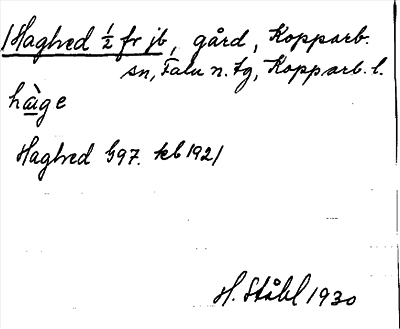 /Haghed ½ fr jb, gård, Kopparb.
sn, Falu n. tg, Kopparb. l.
hàge
Haghed G97. kb 1921
H. Ståhl 1930